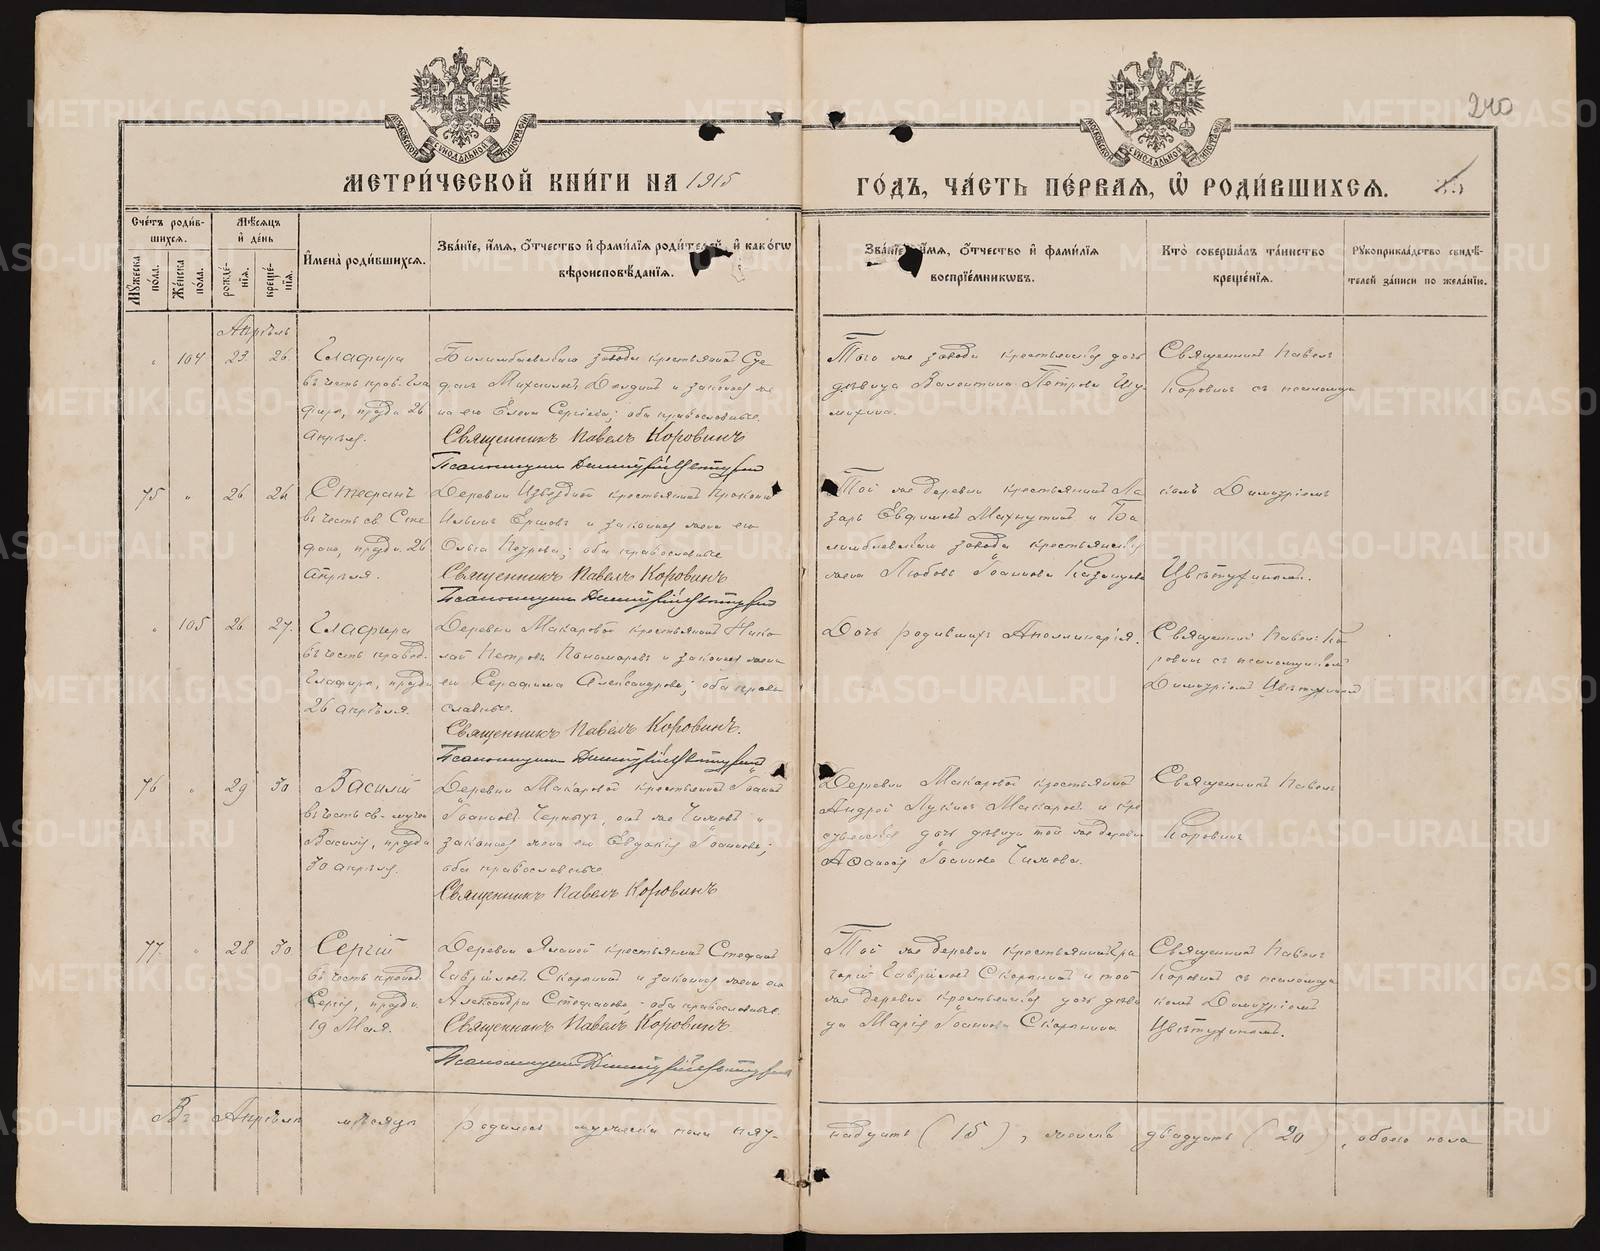 240
МЕТРИ́ЧЕСКОЙ КНИ́ГИ НА 1915
ГО́ДЪ, ЧА́СТЬ ПЕ́РВАЯ, Ѽ РОДИ́ВШИХСЯ.
Сче́тъ роди́в-
шихся.
Мѣ́сяцъ
и҆ де́нь
Мꙋ́жеска
по́ла.
Же́нска
по́ла.
рожде́-
нїя.
креще́-
нїя.
И҆мена̀ роди́вшихся.
Зва́нїе, и҆́мя, ѻ҆́тчество и҆ фами́лїя роди́телей, и҆ како́гѡ
вѣроисповѣ́данїя.
Зва́нїе, и҆́мя, ѻ҆́тчество и҆ фами́лїя
воспрїе́мникѡвъ.
Кто̀ соверша́лъ та́инство
креще́нїя.
Рꙋкоприкла́дство свидѣ́-
телей за́писи по жела́нїю.
Апрѣль
" 104 23. 26.
Глафира
въ честь прав. Гла
фиры, празд. 26
апрѣля.
Билимбаевскаго завода крестьянинъ Сте
фанъ Михаиловъ и законная же
на его Елена Сергіева; оба православные.
Священникъ Павелъ Коровинъ
Псаломщикъ Димитрій Цвѣтухинъ
Того же завода крестьянская дочь
дѣвица Валентина Петрова Шу
михина.
Священникъ Павелъ
Коровинъ съ псаломщи
75 " 26 26
Стефанъ
въ честь св. Сте
фана, празд. 26
Апрѣля.
Деревни крестьянинъ Прокопій
Ильинъ Ершовъ и законная жена его
Ольга Петрова; оба православные
Священникъ Павелъ Коровинъ
Псаломщикъ Димитрій Цвѣтухинъ
Той же деревни крестьянинъ Ла
зарь Евфимовъ Махнуткинъ и Би
лимбаевскаго завода крестьянская
жена Любовь Іоаннова Казанцева
комъ Димитріемъ
Цвѣтухинымъ.
" 105 26 27.
Глафира
въ честь правед.
Глафиры, празд.
26 апрѣля.
Деревни Макаровой крестьянинъ Нико
лай Петровъ Пономаревъ и законная жена
его Серафима Александрова; оба право
славные.
Священникъ Павелъ Коровинъ.
Псаломщикъ Димитрій Цвѣтухинъ
Дочь родившихъ Аполлинарія.
Священникъ Павелъ Ко
ровинъ съ псаломщикомъ
Димитріемъ Цвѣтухинымъ
76 " 29 30
Василій
въ честь св. муч.
Василія, празд.
30 апрѣля.
Деревни Макаровой крестьянинъ Іоаннъ
Іоанновъ Черныхъ, онъ же Чижовъ и
законная жена его Евдокія Іоаннова;
оба православные
Священникъ Павелъ Коровинъ
Деревни Макаровой крестьянинъ
Андрей Лукинъ Макаровъ и кре
стьянская дочь дѣвица той же деревни
Аѳанасія Іоаннова Чижова.
Священникъ Павелъ
Коровинъ
77. " 28 30.
Сергій
въ честь препод.
Сергія, празд.
19 Мая.
Деревни крестьянинъ Стефанъ
Гавріиловъ Скорынинъ и законная жена его
Александра Стефанова; оба православные.
Священникъ Павелъ Коровинъ
Псаломщикъ Димитрій Цвѣтухинъ
Той же деревни крестьянинъ Гри
горій Гавріиловъ Скорынинъ и той
же деревни крестьянская дочь дѣви
ца Марія Іоаннова Скорынина
Священникъ Павелъ
Коровинъ съ псаломщи
комъ Димитріемъ
Цвѣтухинымъ.
Въ Апрѣлѣ мѣсяцѣ родилось мужеска пола пят-
надцать (15), женска двадцать (20), обоего пола